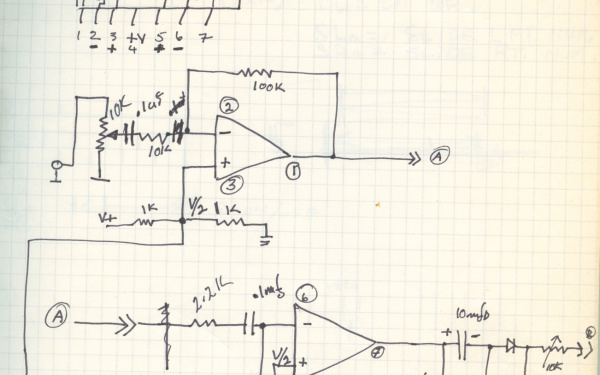 1 2 3 +V 5 6 7
- + 4 + -
100K
10K .1uf
2
-
10K
+
3
1
A
V+ 1K V/2 1K
2.21K .1mfd 6
A
-
10mfd
+ -
V/2 +
7
10K